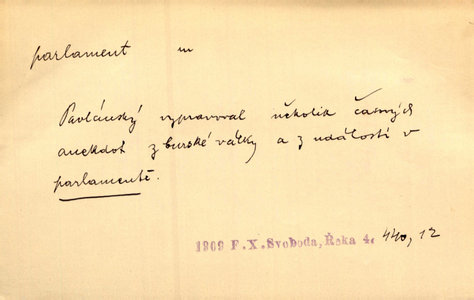 parlament m
Pavlánský vypravoval několik časných
anekdot z burské války a z událostí v
parlamentě.
1909 F.X.Svoboda, Řeka 4. 440, 12